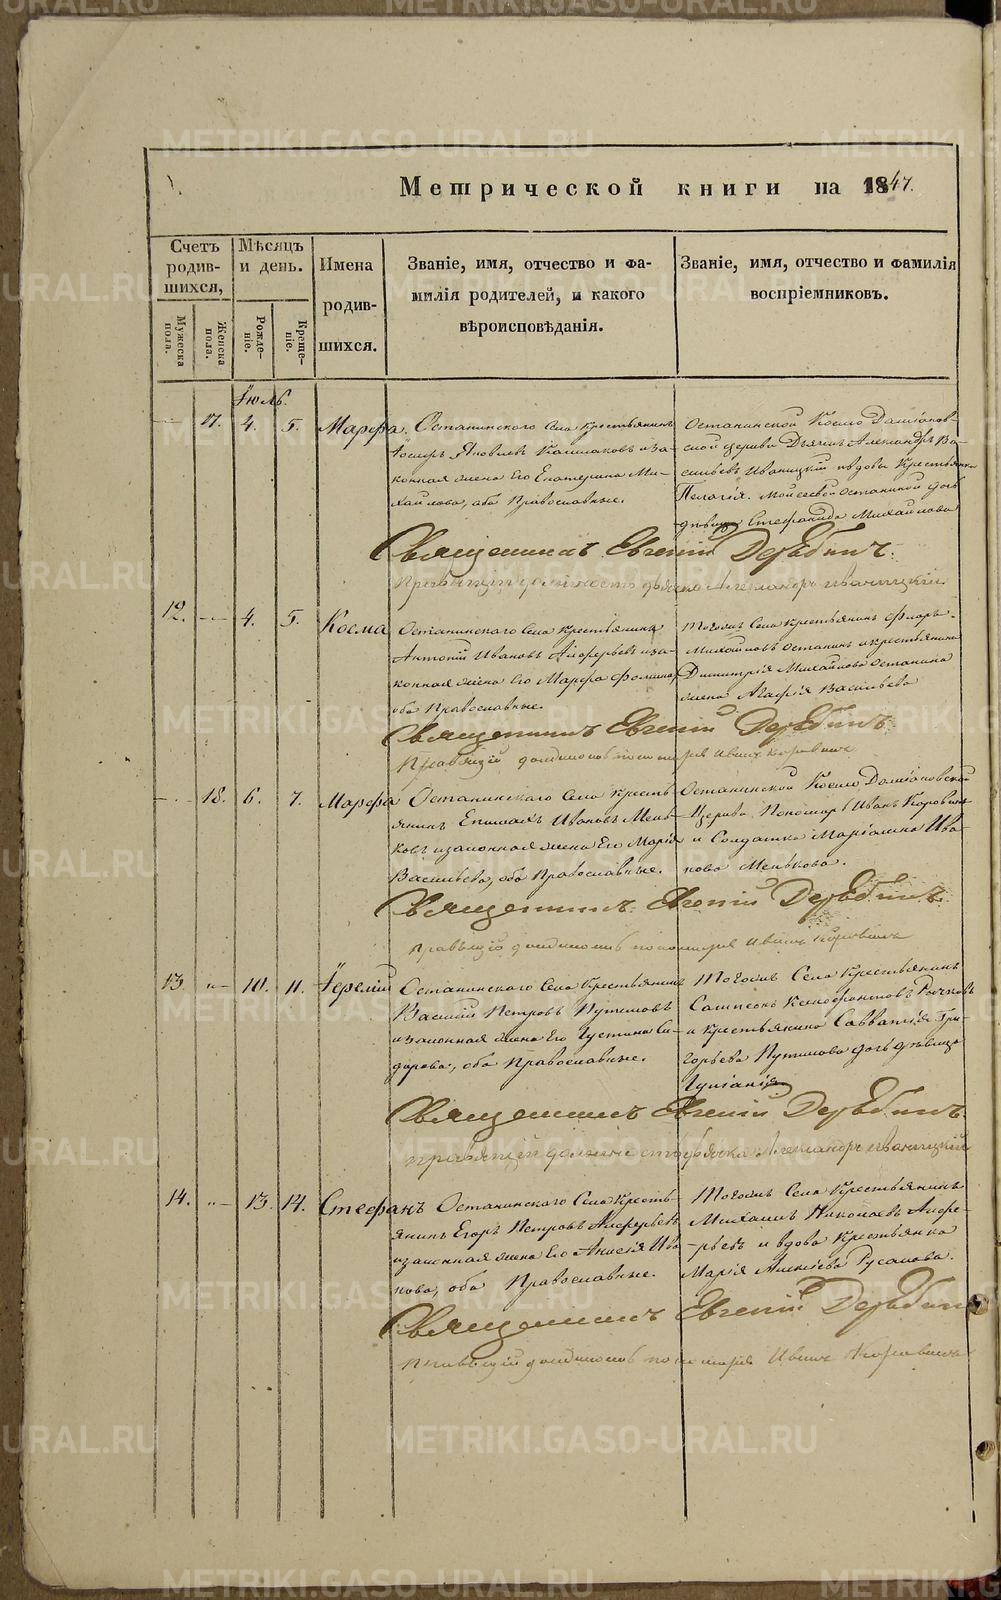 Метрической книги на 1847.
Счетъ родив-шихся,
Мужеска пола.
Женска пола.
Мѣсяцъ и день.
Рожде-ніе.
Креще-ніе.
Имена родив-шихся.
Званіе, имя, отчество и фа-
милія родителей, и какого
вѣроисповѣданія.
Званіе, имя, отчество и фамилія
воспріемниковъ.
Іюль.
17. 4. 5. Марѳа.
Останинскаго Села крестьянинъ
Яковлевъ и за-
конная жена его Екатерина Ми-
хайлова, оба Православные.
Останинской Космо Даміанов-
ской церкви Дьячекъ Александръ Ва-
сильевъ Иваницкій и вдова Крестьянка
Пелагія Останиной дочь
дѣвица Стефанида Михайлова
Священникъ Евгеній Дерябинъ.
Правящій должность дьячка Александръ Иваницкій
12. 4. 5. Косма
Останинскаго Села крестьянинъ
Антоній Ивановъ Алферьевъ и за-
конная жена его Марѳа Фомина,
оба Православные.
Тогожъ Села крестьянинъ Флоръ
Михайловъ Останинъ и крестьянина
Димитрія Михайлова Останина
жена Агафія Васильева
Священникъ Евгеній Дерябинъ
Правящій должность пономаря Иванъ Коровинъ
18. 6. 7. Марѳа
Останинскаго Села кресть-
янинъ Ивановъ Мень-
ковъ и законная жена его Марія
Васильева, оба Православные.
Останинской Космо Даміановской
Церкви Пономарь Иванъ Коровинъ
и Солдатка Маріамна Ива-
нова Менькова.
Священникъ Евгеній Дерябинъ.
Правящій должность пономаря Иванъ Коровинъ
13. 10. 11. Іеремій
Останинскаго Села Крестьянинъ
Василій Петровъ Путиловъ
и законная жена его Іустина Си-
дорова, оба Православные.
Тогожъ Села Крестьянинъ
Сампсонъ Ксенофонтовъ
и крестьянина Савватія Гри-
горьева Путилова дочь дѣвица
Іуліанія
Священникъ Евгеній Дерябинъ.
Правящій должность дьячка Александръ Иваницкій
14. 13. 14. Стефанъ
Останинскаго Села Кресть-
янинъ Егоръ Петровъ Алферьевъ
и законная жена его Анисія Ива-
нова, оба Православные.
Тогожъ Села Крестьянинъ
Михаилъ Николаевъ Алфе-
рьевъ и вдова Крестьянка
Марія Алексіева Русакова.
Священникъ Евгеній Дерябинъ
Правящій должность пономаря Иванъ Коровинъ
METRIKI.GASO-URAL.RU